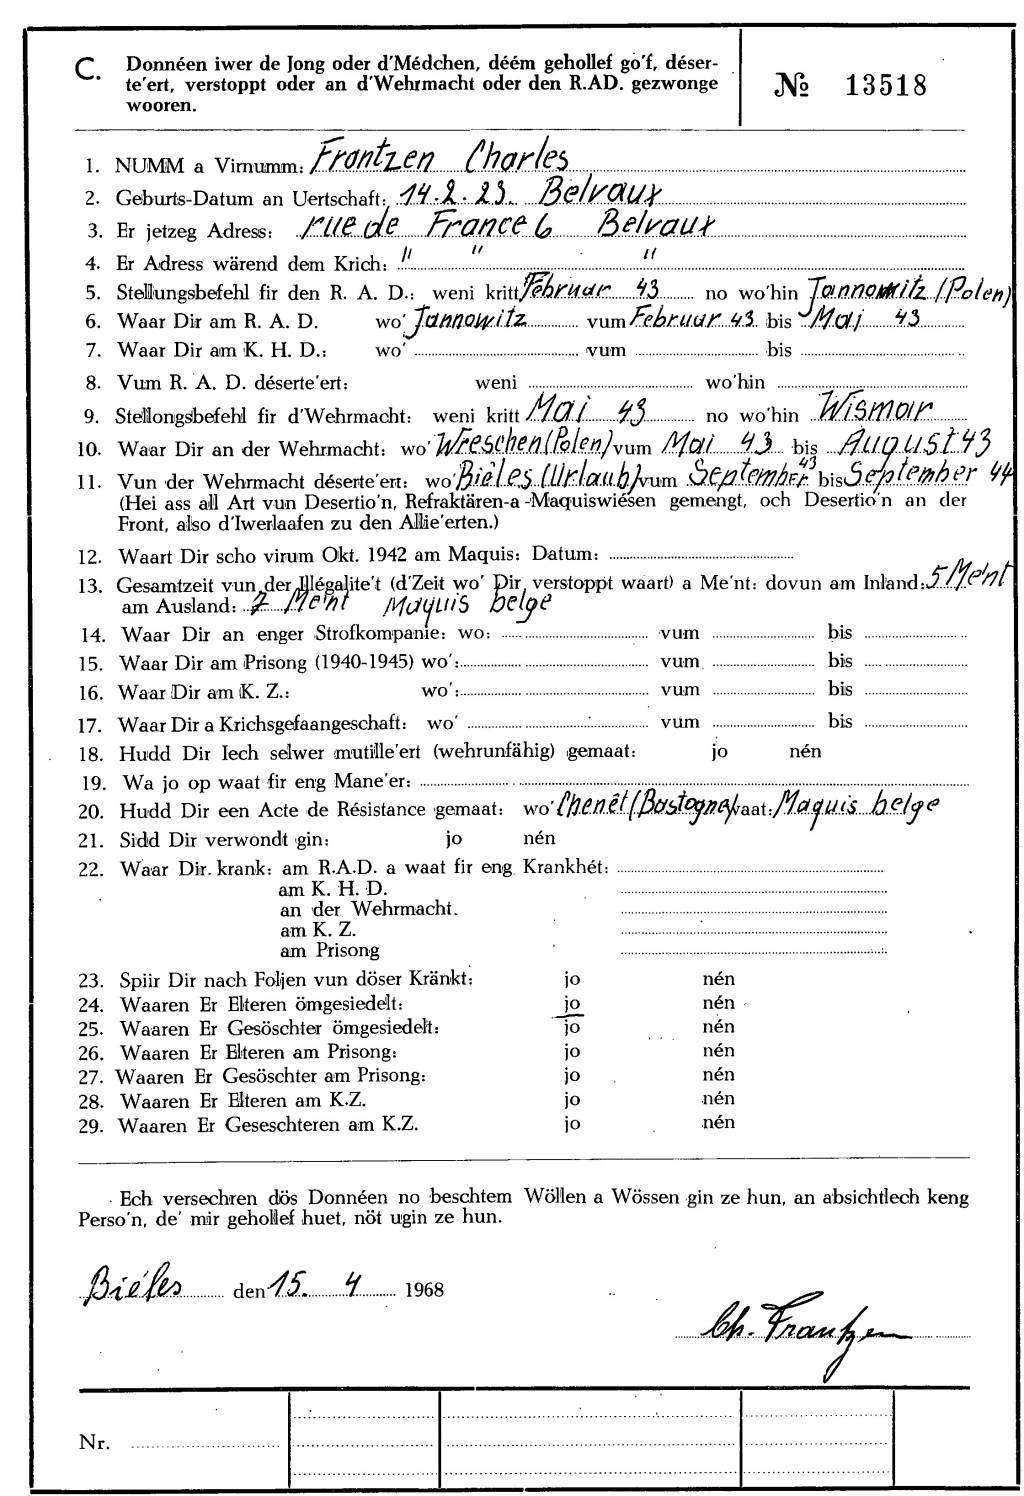 C. Donnéen iwer de Jong oder d'Médchen, déém gehollef go'f, déser-
te'ert, verstoppt oder an d'Wehrmacht oder den R.AD. gezwonge
wooren.
№ 13518
1. NUMM a Virnumm: Frantzen Charles
2. Geburts-Datum an Uertschaft: 14.2.23. Belvaux
3. Er jetzeg Adress: rue de France 6 Belvaux
4. Er Adress wärend dem Krich: " " "
5. Stellungsbefehl fir den R. A. D.: weni kritt Februar 43 no wo'hin Jannowitz (Polen)
6. Waar Dir am R. A. D. wo' Jannowitz vum Februar 43 bis Mai 43
7. Waar Dir am K. H. D.: wo' vum bis
8. Vum R. A. D. déserte'ert: weni wo'hin
9. Stellongsbefehl fir d'Wehrmacht: weni kritt Mai 43 no wo'hin Wismar
10. Waar Dir an der Wehrmacht: wo' Wreschen (Polen) vum Mai 43 bis August 43
11. Vun der Wehrmacht déserte'ert: wo' Biêles (Urlaub) vum September 43 bis September 44
(Hei ass all Art vun Desertio'n, Refraktären-a-Maquiswiésen gemengt, och Desertio'n an der
Front, also d'Iwerlaafen zu den Allie'erten.)
12. Waart Dir scho virum Okt. 1942 am Maquis: Datum:
13. Gesamtzeit vun der Illégalite't (d'Zeit wo' Dir verstoppt waart) a Me'nt: dovun am Inland: 5 Me'nt
am Ausland: 7 Me'nt Maquis belge
14. Waar Dir an enger Strofkompanie: wo: vum bis
15. Waar Dir am Prisong (1940-1945) wo': vum bis
16. Waar Dir am K. Z.: wo': vum bis
17. Waar Dir a Krichsgefaangeschaft: wo' vum bis
18. Hudd Dir Iech selwer mutille'ert (wehrunfähig) gemaat: jo nén
19. Wa jo op waat fir eng Mane'er:
20. Hudd Dir een Acte de Résistance gemaat: wo' Chenêt (Bastogne) waat: Maquis belge
21. Sidd Dir verwondt gin: jo nén
22. Waar Dir krank: am R.A.D. a waat fir eng Krankhét:
am K. H. D.
an der Wehrmacht.
am K. Z.
am Prisong
23. Spiir Dir nach Foljen vun döser Kränkt: jo nén
24. Waaren Er Elteren ömgesiedelt: jo nén
25. Waaren Er Gesöschter ömgesiedelt: jo nén
26. Waaren Er Elteren am Prisong: jo nén
27. Waaren Er Gesöschter am Prisong: jo nén
28. Waaren Er Elteren am K.Z. jo nén
29. Waaren Er Geseschteren am K.Z. jo nén
Ech versechren dös Donnéen no beschtem Wöllen a Wössen gin ze hun, an absichtlech keng
Perso'n, de' mir gehollef huet, nöt ugin ze hun.
Biéles den 15. 4 1968
Ch. Frantzen
Nr.